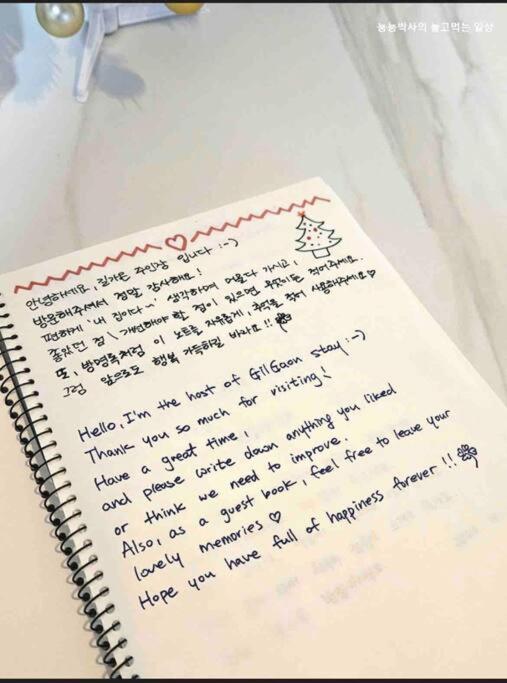 능능박사의 놀고먹는 일상
안녕하세요, 길가온 주인장 입니다 :-)
방문해주셔서 정말 감사해요!
편하게 '내 집이다~' 생각하며 머물다 가시고,
좋았던 점 \ 개선해야 할 점이 있으면 무엇이든 적어주세요.
또, 방명록처럼 이 노트를 자유롭게, 추억을 찾아 사용해주세요♡
그럼 앞으로도 행복 가득하길 바라요!!
Hello, I'm the host of GilGaon stay :-)
Thank you so much for visiting!
Have a great time,
and please write down anything you liked
or think we need to improve.
Also, as a guest book, feel free to leave your
lovely memories ♡
Hope you have full of happiness forever !!